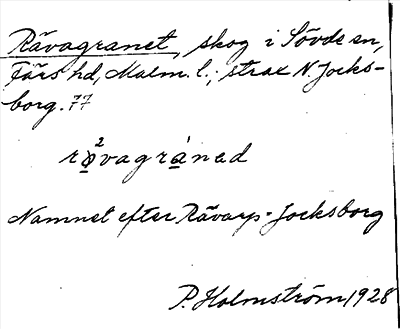 Rävagranet, skog i Sövde sn,
Färs hd, Malm. l.; strax N. Jocks-
borg. 77
rà̱²vagrá̱nad
Namnet efter Rävarp-Jocksborg
P. Holmström 1928